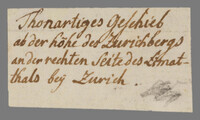 Thonartiges Geschieb
ab der höhe des Zurichbergs
an der rechten Seite des Limat-
thals bey Zurich.